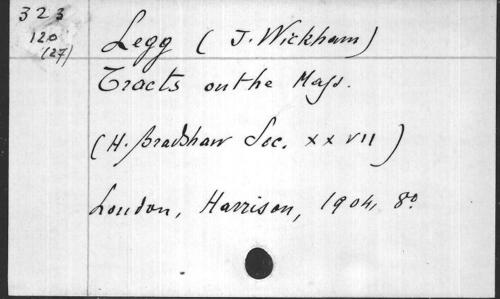 323
120
(27)
Legg (J. Wickham)
Tracts on the Mass.
(H. Bradshaw Soc. xxvii)
London, Harrison, 1904, 8º.